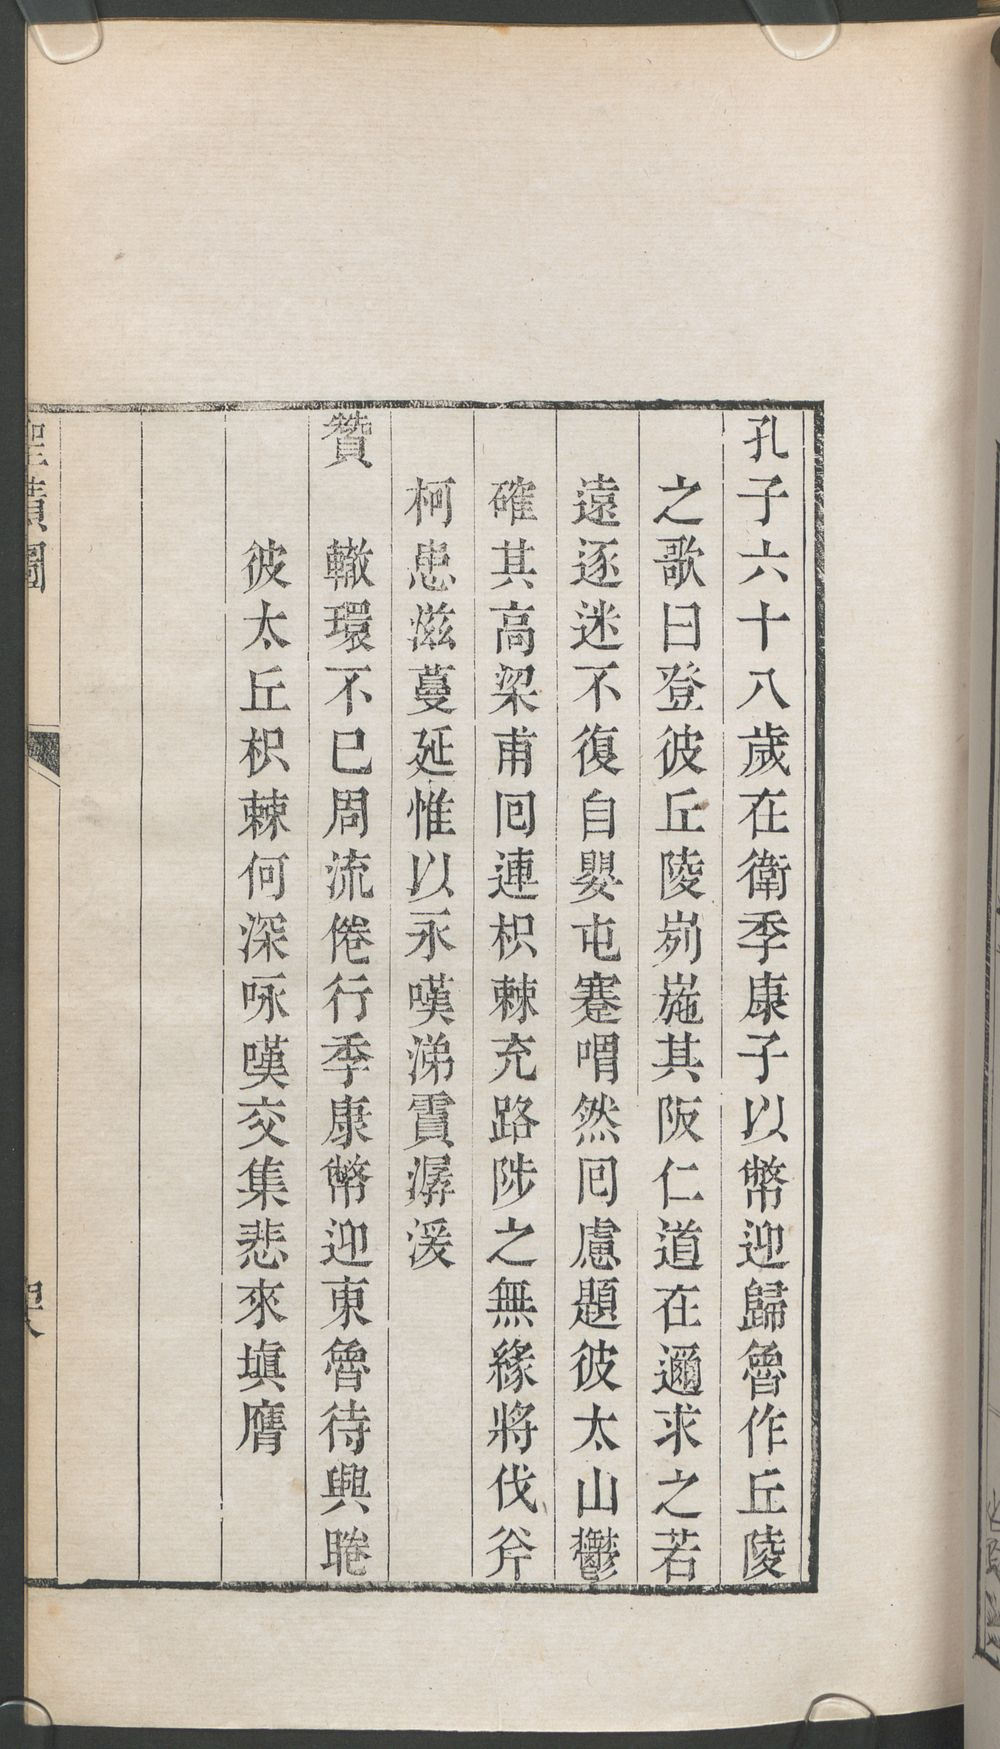 孔子六十八歲在衛季康子以幣迎歸魯作丘陵
之歌曰登彼丘陵峛崺其阪仁道在邇求之若
遠逐迷不復自嬰屯蹇喟然回慮題彼太山鬱
確其高梁甫回連枳棘充路陟之無緣將伐斧
柯患滋蔓延惟以永嘆涕霣潺湲
贊 轍環不已周流倦行季康幣迎東魯待興睠
彼太丘枳棘何深咏嘆交集悲來填膺
聖蹟圖